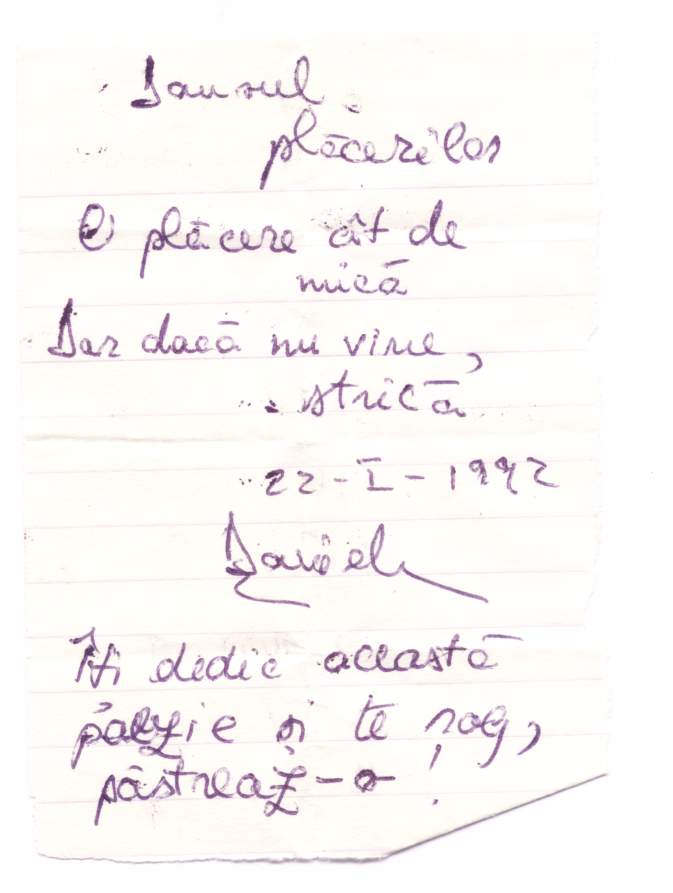 Dansul
plăcerilor
O plăcere cât de
mică
Dar dacă nu vine,
strică
22-I-1992
Daniel
Îți dedic această
paezie și te rog,
păstreaz-o!